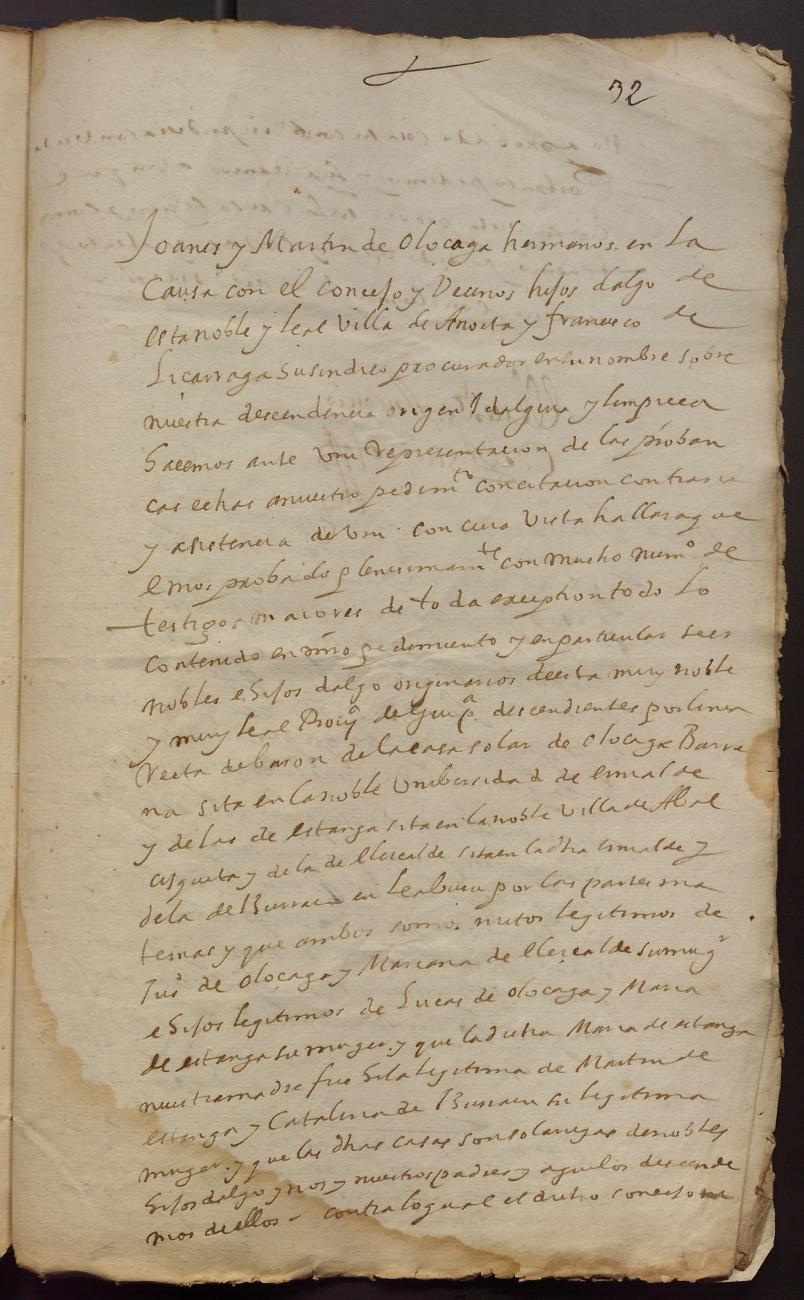 32
Joanes y Martin de Olocaga hermanos en La
Causa con el concejo y Vecinos hijos dalgo de
esta noble y leal Villa de Anoeta y francisco de
Licarraga su sindico procurador en su nombre sobre
nuestra descendencia origen Idalguia y limpieca
hacemos ante Vm Representacion de las proban
cas echas a nuestro pedimto con citacion contraria
y asistencia de Vm. con cuia Vista hallara que
emos probado plenisimamte con mucho numo de
testigos maiores de toda exception todo Lo
contenido en nro pedimiento y en particular seer
nobles e hijos dalgo originarios de esta muy noble
y muy leal Procia de Guipa descendientes por linea
Recta de baron de la casa solar de Olocaga Barre
na sita en la noble Unibersidad de ernialde
y de las de estanga sita en la noble Villa de Al
cisqueta y de la de Elicalde sita en la dha ernialde y
de la de en Leaburu por las partes ma
ternas y que ambos somos nietos legitimos de
Juo de Olocaga y Mariana de Elicalde su mugr
e hijos legitimos de Lucas de Olocaga y Maria
de estanga su muger. y que la dicha Maria de estanga
nuestra madre fue hija legitima de Martin de
estanga y Catalina de su legitima
muger. y que las dhas casas son solariegas de nobles
hijos dalgo y nos y nuestros padres y aguelos descende
mos de ellos - contra lo qual el dicho concejo na